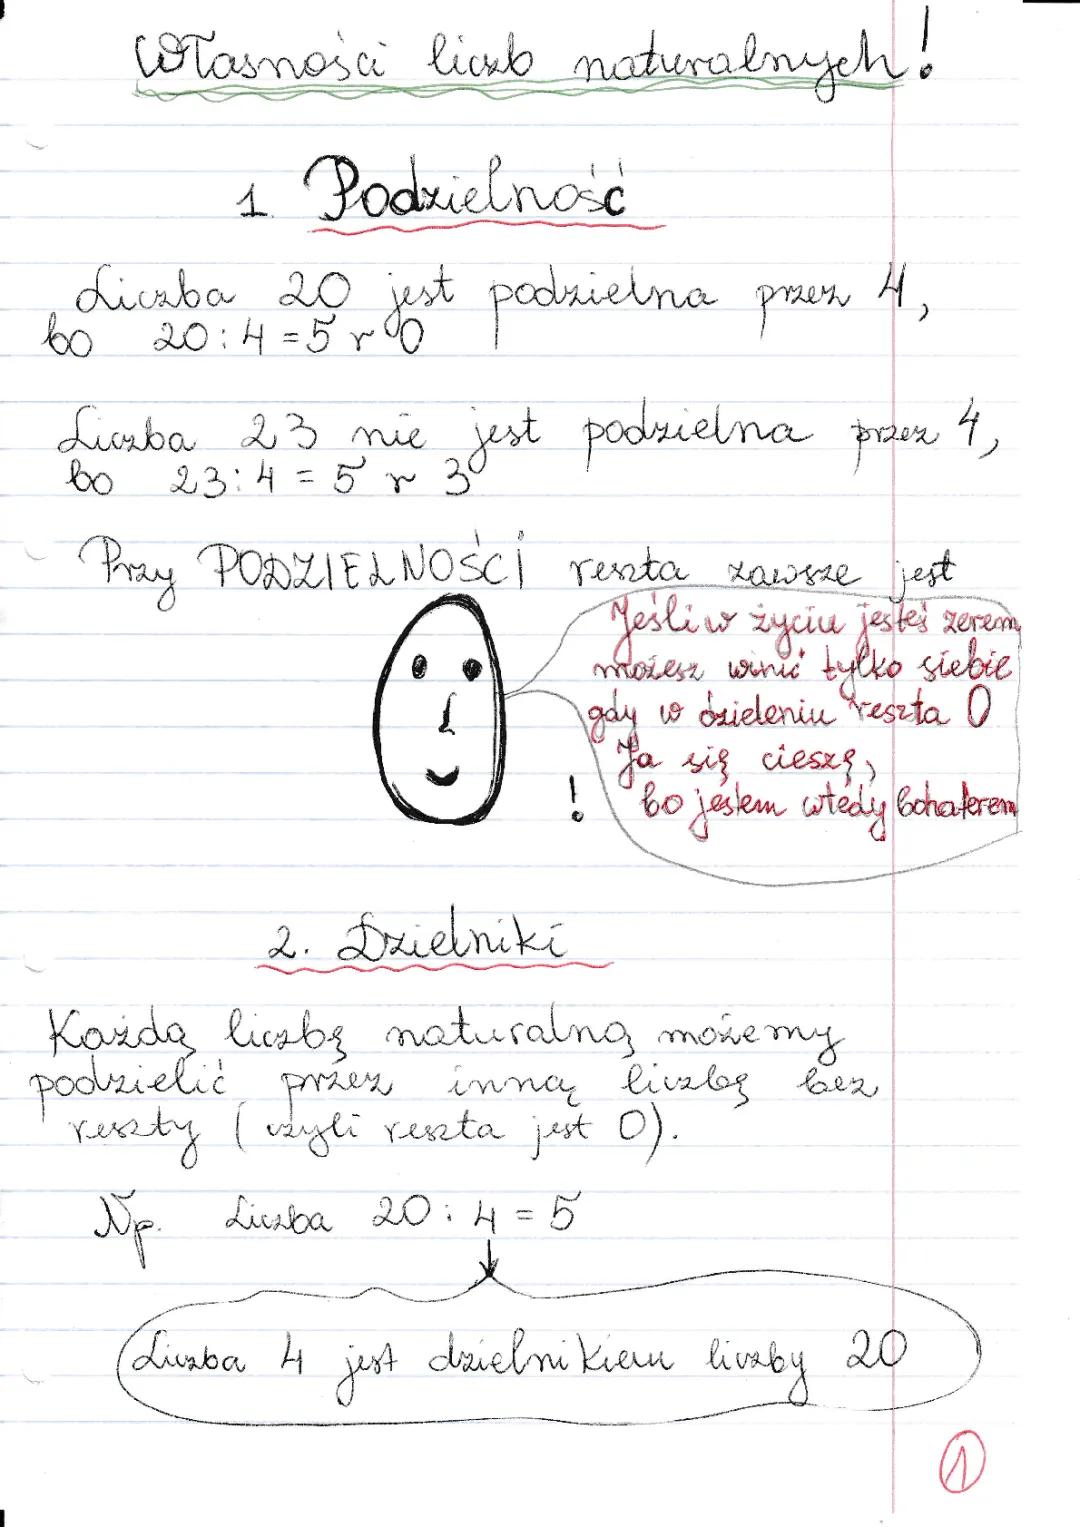 Własności liczb naturalnych!
1. Podzielność
Liczba 20 jest podzielna przez 4,
bo 20:4=5 r 0
Liczba 23 nie jest podzielna przez 4,
bo 23:4=5 r 3
Przy PODZIELNOŚCI reszta zawsze jest
Jeśli w życiu jesteś zerem
możesz winić tylko siebie
gdy w dzieleniu reszta 0
Ja się cieszę,
bo jestem wtedy bohaterem
!
2. Dzielniki
Każdą liczbę naturalną możemy
podzielić przez inną liczbę bez
reszty (czyli reszta jest 0).
Np. Liczba 20:4=5
Liczba 4 jest dzielnikiem liczby 20
1